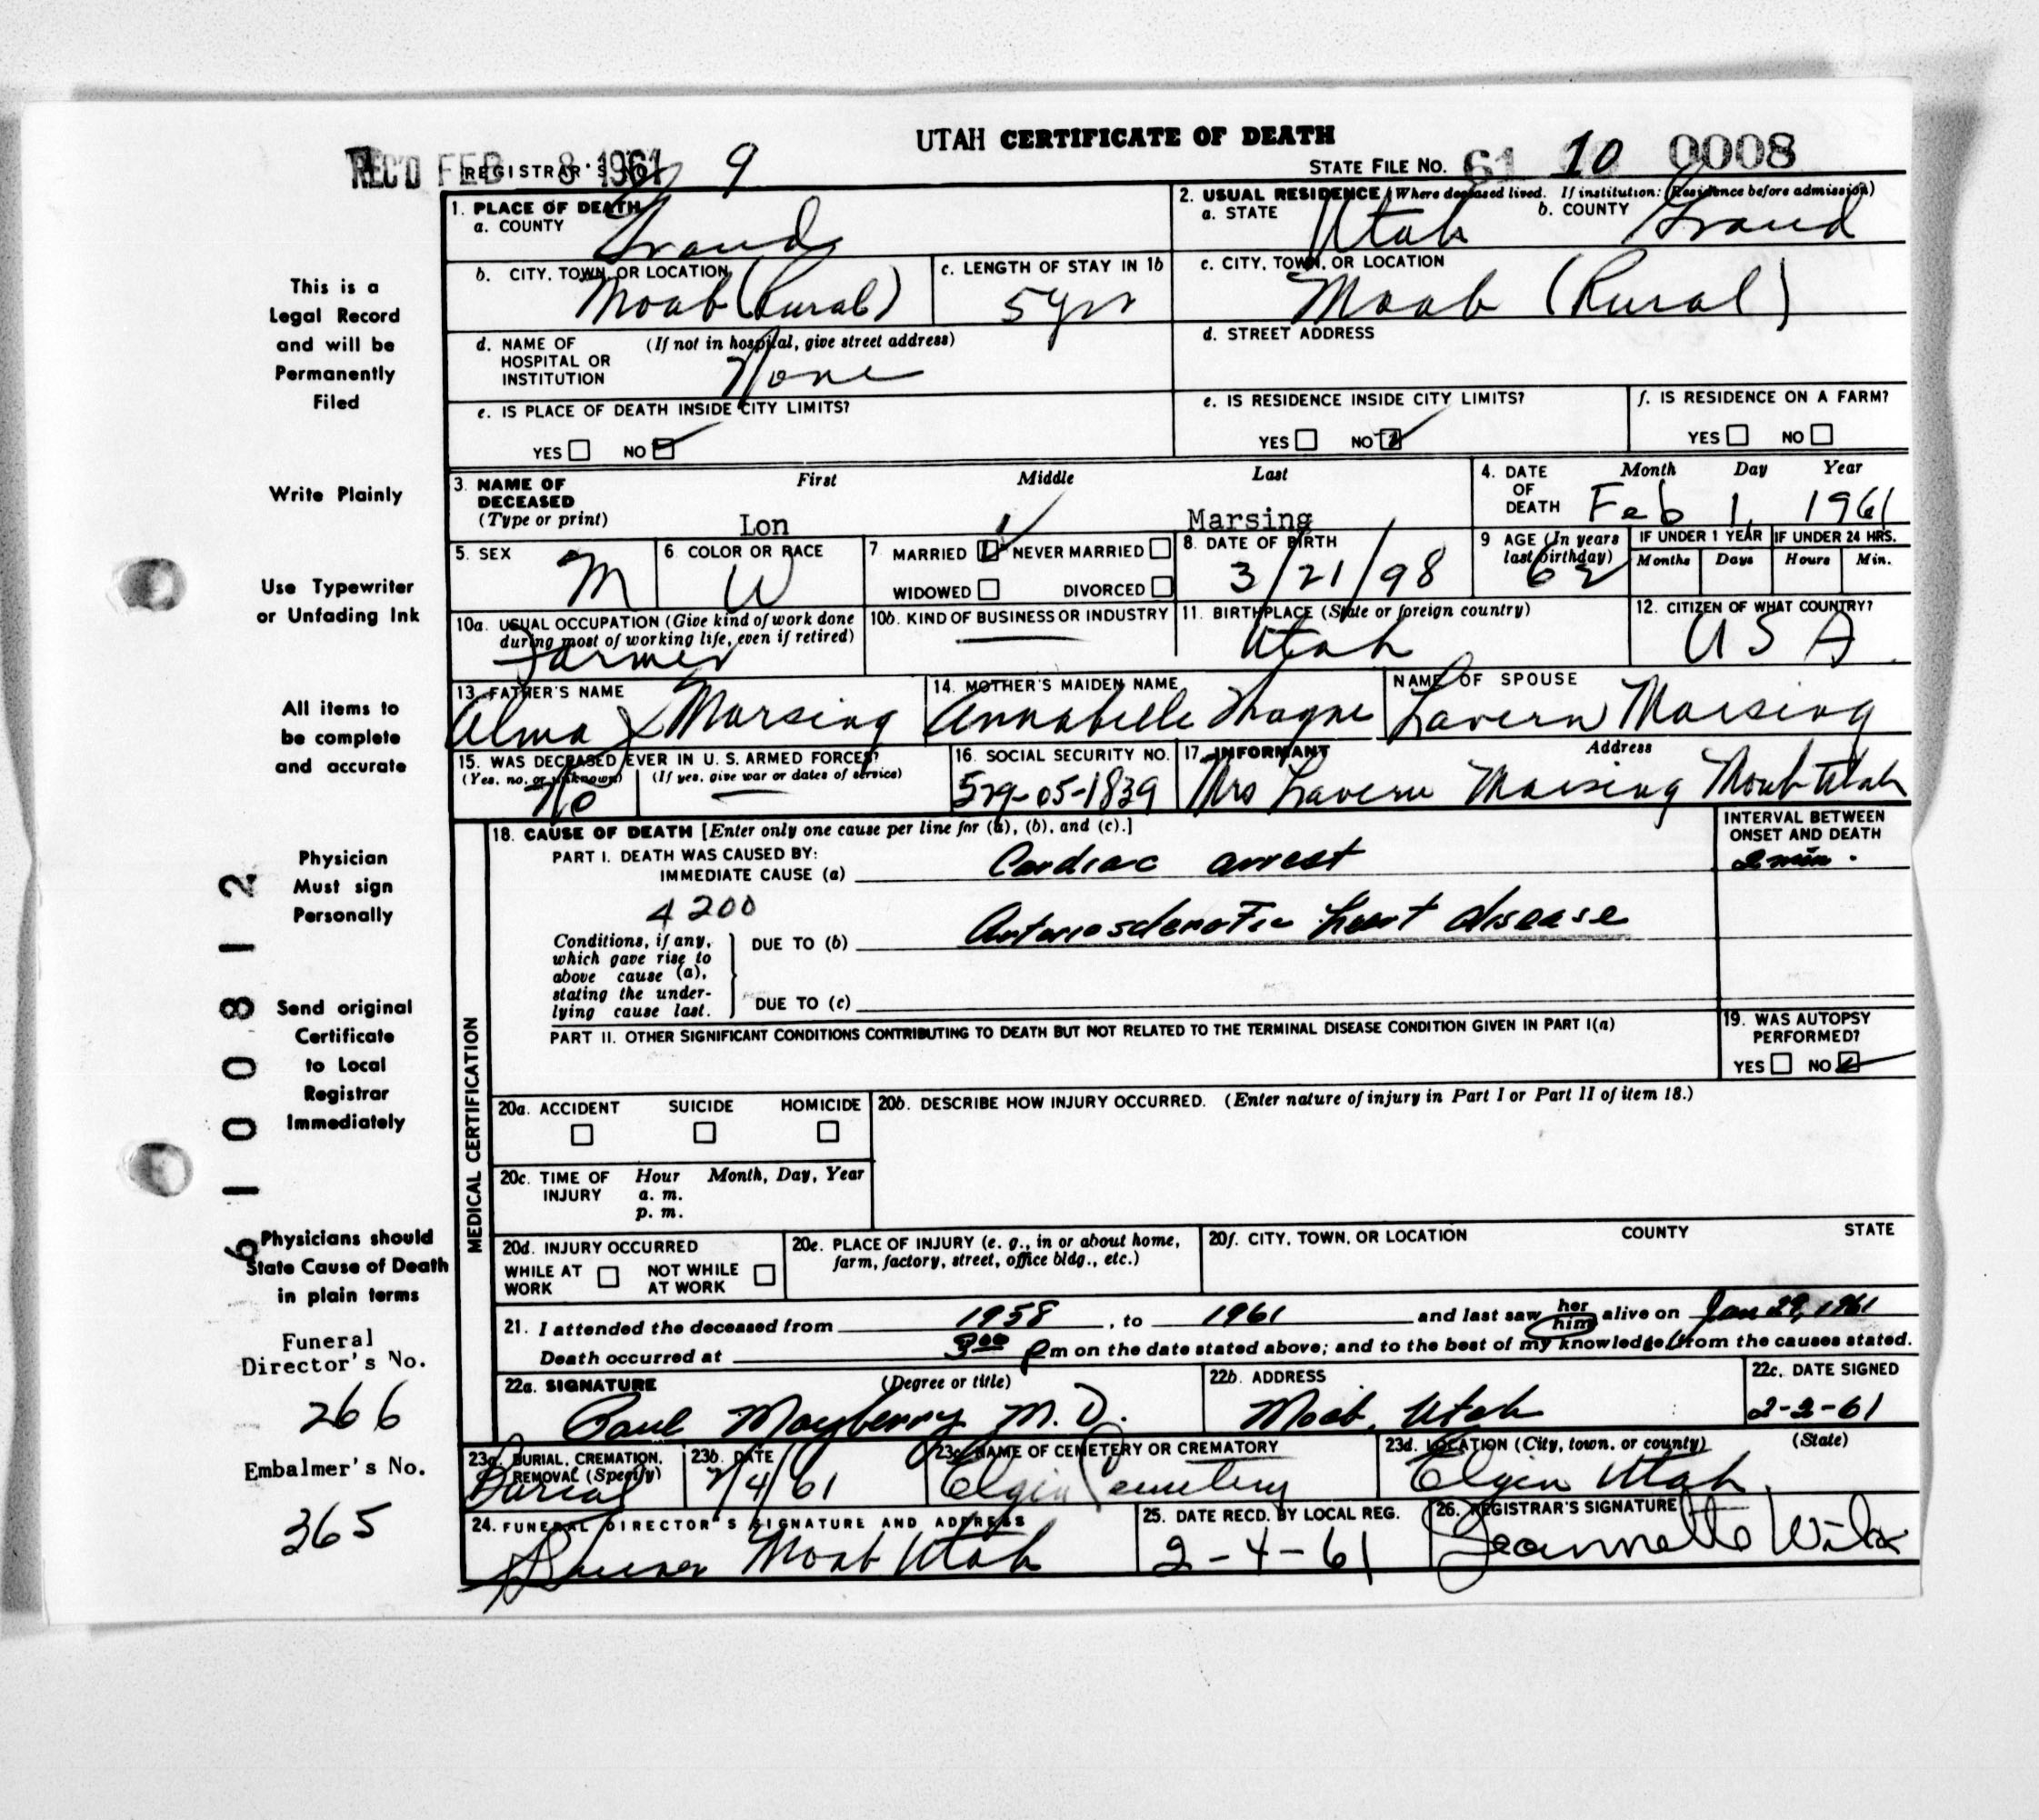 UTAH CERTIFICATE OF DEATH
REC'D FEB 8 1961 REGISTRAR'S NO. 9 STATE FILE NO. 61 10 0008
1. PLACE OF DEATH
a. COUNTY Grand
2. USUAL RESIDENCE (Where deceased lived. If institution: Residence before admission)
a. STATE Utah b. COUNTY Grand
b. CITY, TOWN, OR LOCATION Moab (Rural)
c. LENGTH OF STAY IN 1b 5 yrs
c. CITY, TOWN, OR LOCATION Moab (Rural)
d. NAME OF HOSPITAL OR INSTITUTION (If not in hospital, give street address) None
d. STREET ADDRESS
e. IS PLACE OF DEATH INSIDE CITY LIMITS?
YES NO
e. IS RESIDENCE INSIDE CITY LIMITS?
YES NO
f. IS RESIDENCE ON A FARM?
YES NO
3. NAME OF DECEASED (Type or print)
First Middle Last
Lon Marsing
4. DATE OF DEATH Month Day Year
Feb 1, 1961
5. SEX M
6. COLOR OR RACE W
7. MARRIED NEVER MARRIED
WIDOWED DIVORCED
8. DATE OF BIRTH 3/21/98
9 AGE (In years last birthday) 62
IF UNDER 1 YEAR Months Days
IF UNDER 24 HRS. Hours Min.
10a. USUAL OCCUPATION (Give kind of work done during most of working life, even if retired) Farmer
10b. KIND OF BUSINESS OR INDUSTRY
11. BIRTHPLACE (State or foreign country) Utah
12. CITIZEN OF WHAT COUNTRY? USA
13. FATHER'S NAME Alma Marsing
14. MOTHER'S MAIDEN NAME Annabelle Thayne
NAME OF SPOUSE Lavern Marsing
15. WAS DECEASED EVER IN U. S. ARMED FORCES?
(Yes, no, or unknown) (If yes, give war or dates of service)
No
16. SOCIAL SECURITY NO. 529-05-1839
17. INFORMANT Address
Mrs Lavern Marsing Moab Utah
18. CAUSE OF DEATH [Enter only one cause per line for (a), (b), and (c).]
INTERVAL BETWEEN ONSET AND DEATH
PART I. DEATH WAS CAUSED BY:
IMMEDIATE CAUSE (a) Cardiac arrest 2 min.
4200
Conditions, if any, which gave rise to above cause (a), stating the underlying cause last.
DUE TO (b) Arteriosclerotic heart disease
DUE TO (c)
PART II. OTHER SIGNIFICANT CONDITIONS CONTRIBUTING TO DEATH BUT NOT RELATED TO THE TERMINAL DISEASE CONDITION GIVEN IN PART I(a)
19. WAS AUTOPSY PERFORMED?
YES NO
MEDICAL CERTIFICATION
20a. ACCIDENT SUICIDE HOMICIDE
20b. DESCRIBE HOW INJURY OCCURRED. (Enter nature of injury in Part I or Part II of item 18.)
20c. TIME OF INJURY Hour Month, Day, Year
a. m.
p. m.
20d. INJURY OCCURRED
WHILE AT WORK NOT WHILE AT WORK
20e. PLACE OF INJURY (e. g., in or about home, farm, factory, street, office bldg., etc.)
20f. CITY, TOWN, OR LOCATION COUNTY STATE
21. I attended the deceased from 1958, to 1961 and last saw her him alive on Jan 29, 1961
Death occurred at 3:00 Pm on the date stated above; and to the best of my knowledge, from the causes stated.
22a. SIGNATURE (Degree or title)
Paul Mayberry M.D.
22b. ADDRESS Moab, Utah
22c. DATE SIGNED 2-2-61
23a. BURIAL, CREMATION, REMOVAL (Specify) Burial
23b. DATE 2/4/61
23c. NAME OF CEMETERY OR CREMATORY Elgin Cemetery
23d. LOCATION (City, town, or county) (State)
Elgin Utah
24. FUNERAL DIRECTOR'S SIGNATURE AND ADDRESS
Moab Utah
25. DATE RECD. BY LOCAL REG. 2-4-61
26. REGISTRAR'S SIGNATURE Jeannette
This is a
Legal Record
and will be
Permanently
Filed
Write Plainly
Use Typewriter
or Unfading Ink
All items to
be complete
and accurate
Physician
Must sign
Personally
Send original
Certificate
to Local
Registrar
Immediately
Physicians should
State Cause of Death
in plain terms
Funeral
Director's No.
266
Embalmer's No.
365
6100812